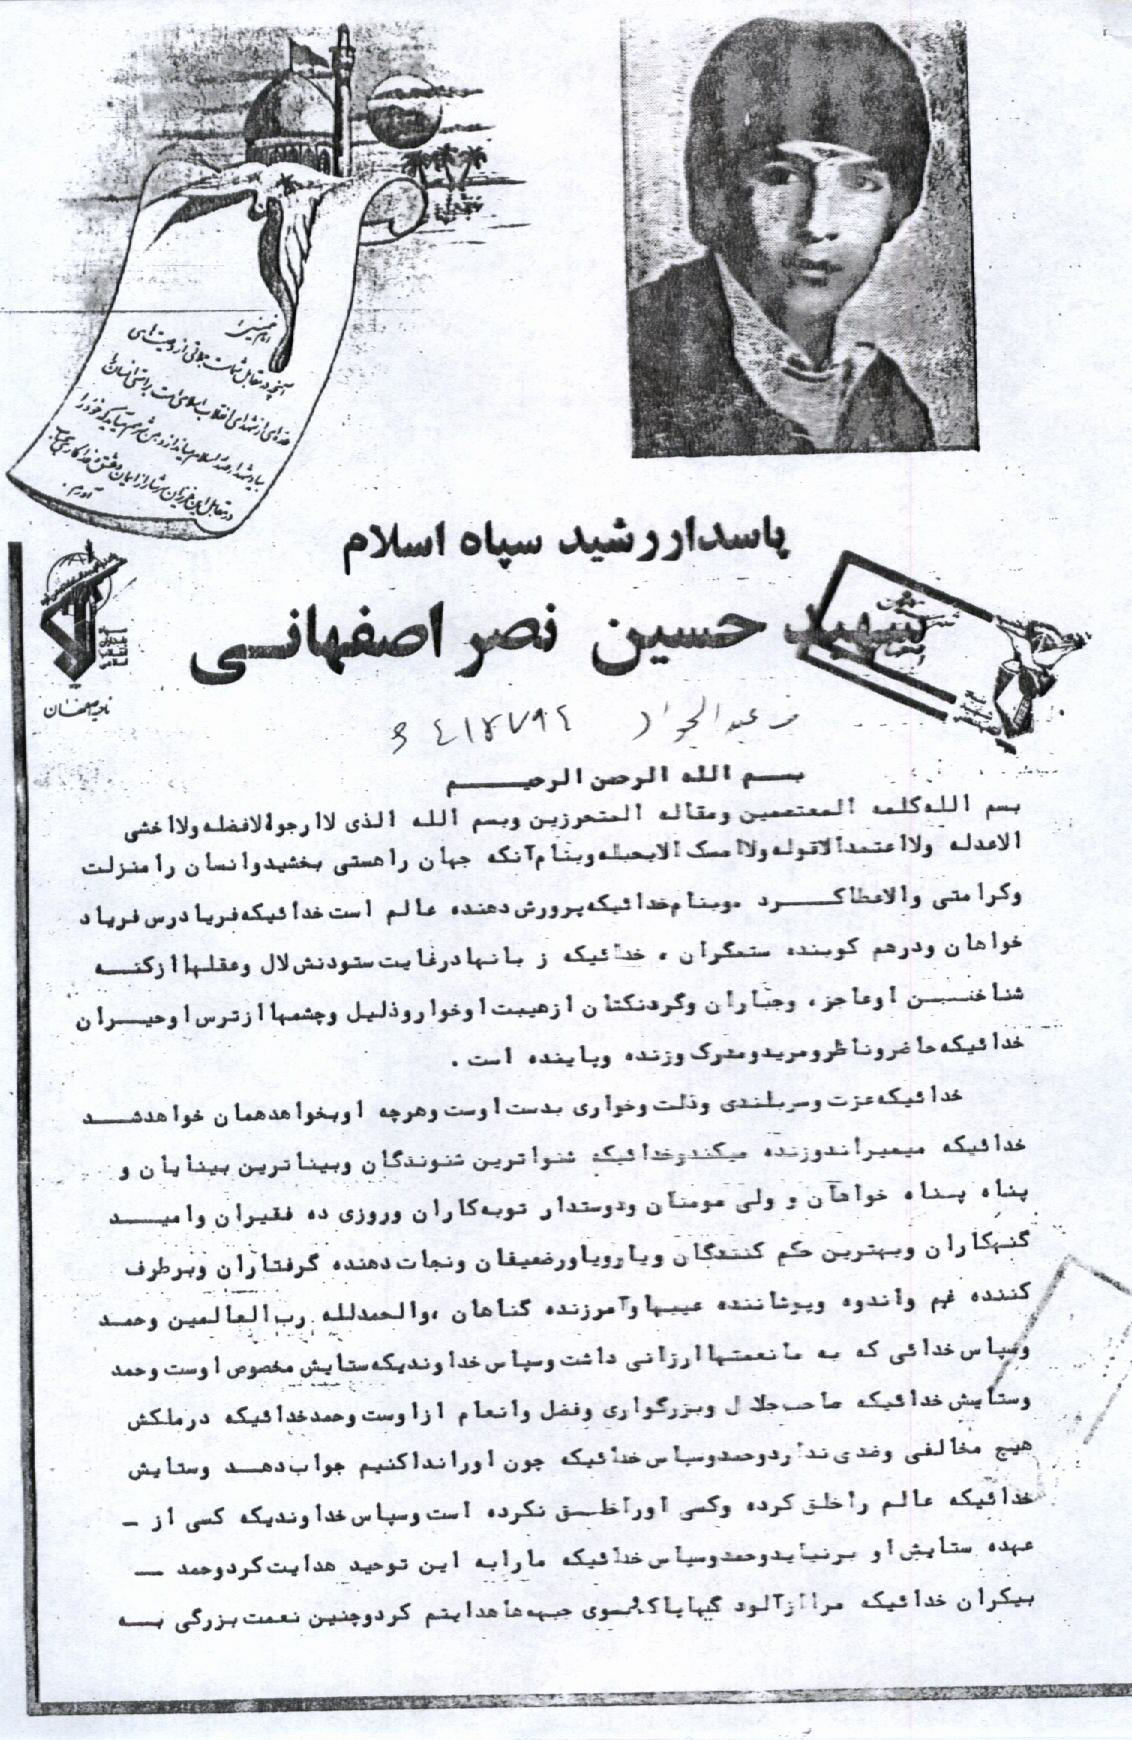 امام خمینی:
آنچه در مقابل ملت
فدای از شهدای انقلاب اسلامی است براستی انسان را
پاسدار رشید سپاه اسلام
شهید حسین نصر اصفهانی
سپاه
پاسداران
انقلاب
اسلامی
ناحیه اصفهان
عبدالجواد
بسم الله الرحمن الرحیم
بسم الله کلمه المعتصمین و مقاله المتحرزین وبسم الله الذی لا ارجوا الافضله ولا اخشی
الاعدله ولا اعتمد الا قوله ولا امسک الا بحبله وبنام آنکه جهان را هستی بخشید وانسان را منزلت
وکرامتی والا عطا کرد .وبنام خدائیکه پرورش دهنده عالم است خدائیکه فریادرس فریاد
خواهان ودرهم کوبنده ستمگران ، خدائیکه زبانها درغایت ستودنش لال وعقلها از کنه
شناختن او عاجز، وجباران وگردنکشان از هیبت او خوار وذلیل وچشمها از ترس او حیران
خدائیکه حاضر وناظر ومرید ومدرک وزنده وپاینده است .
خدائیکه عزت وسربلندی وذلت وخواری بدست اوست وهرچه او بخواهد همان خواهد شد
خدائیکه میمیراند وزنده میکند وخدائیکه شنواترین شنوندگان وبیناترین بینایان و
پناه پناه خواهان و ولی مومنان ودوستدار توبه کاران وروزی ده فقیران وامید
گنهکاران وبهترین حکم کنندگان ویار ویاور ضعیفان ونجات دهنده گرفتاران وبرطرف
کننده غم واندوه وپوشاننده عیبها وآمرزنده گناهان ،والحمدلله رب العالمین وحمد
وسپاس خدائی که به ما نعمتها ارزانی داشت وسپاس خداوندیکه ستایش مخصوص اوست وحمد
وستایش خدائیکه صاحب جلال وبزرگواری وفضل وانعام از اوست وحمد خدائیکه در ملکش
هیچ مخالفی وضدی ندارد وحمد وسپاس خدائیکه چون او را ندا کنیم جواب دهد وستایش
خدائیکه عالم را خلق کرده وکسی او را خلق نکرده است وسپاس خداوندیکه کسی از —
عهده ستایش او برنیاید وحمد وسپاس خدائیکه ما را به این توحید هدایت کرد وحمد —
بیکران خدائیکه مرا از آلودگیها پاک وبسوی جبهه ها هدایتم کرد وچنین نعمت بزرگی به